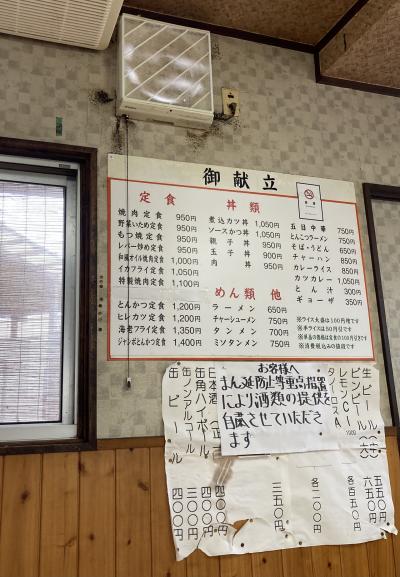 御献立
定食
焼肉定食 950円
野菜いため定食 950円
もつ焼定食 950円
レバー炒め定食 950円
和風オイル焼肉定食 1,000円
イカフライ定食 1,050円
特製焼肉定食 1,100円
とんかつ定食 1,200円
ヒレカツ定食 1,200円
海老フライ定食 1,350円
ジャンボとんかつ定食 1,400円
丼類
煮込カツ丼 1,050円
ソースかつ丼 1,050円
親子丼 950円
玉子丼 900円
肉丼 950円
めん類 他
ラーメン 650円
チャーシューメン 750円
タンメン 700円
ミソタンメン 750円
五目中華 750円
とんこつラーメン 750円
そば・うどん 650円
チャーハン 850円
カレーライス 850円
カツカレー 1,050円
とん汁 300円
ギョーザ 350円
※ライス大盛は100円増です
※半ライスは50円引です
※単品の価格は定食の100円引きです
※消費税込みの値段です
お客様へ
まん延防止等重点措置
により酒類の提供を
自粛させていただき
ます
生ビール
ビンビール
レモン
日本酒
缶角ハイボール
缶ノンアルコール
缶ビール
五五〇円
六五〇円
各五五〇円
各二〇〇円
三五〇円
四〇〇円
四〇〇円
三〇〇円
四〇〇円